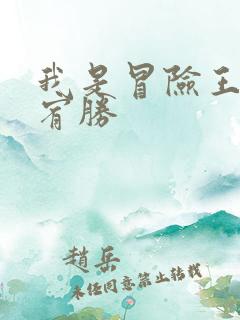 我是冒險王
宥勝
趙岳
未经同意禁止转载